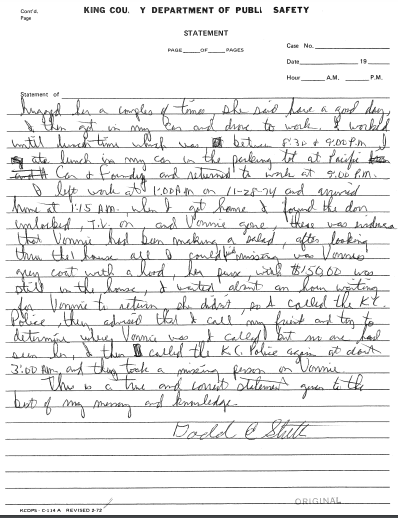 Cont'd.
Page
KING COU Y DEPARTMENT OF PUBLI SAFETY
STATEMENT
PAGE ____ OF ____ PAGES
Case No.
Date 19
Hour A.M. P.M.
Statement of
hugged her a couples of times she said have a good day,
I then got in my car and drove to work. I worked
until lunch time which was between 8:30 & 9:00 P.M. I
ate lunch in my car in the parking lot at Pacific
Car & Foundry and returned to work at 9:00 P.M.
I left work at 1:00 AM on 11-28-74 and arrived
home at 1:15 A.M. when I got home I found the door
unlocked, T.V. on and Vonnie gone, there was evidence
that Vonnie had been making a salad, after looking
thru the house all I could missing was Vonnies
grey coat with a hood, her purse with $150.00 was
still in the house, I waited about an hour waiting
for Vonnie to return she didn't, so I called the K.C.
Police, they advised that I call my friend and try to
determine where Vonnie was I called but no one had
seen her, I then called the K.C. Police again at about
3:00 AM and they took a missing person on Vonnie.
This is a true and correct statement given to the
best of my memory and knowledge.
ORIGINAL
KCDPS - C-114 A REVISED 2-72